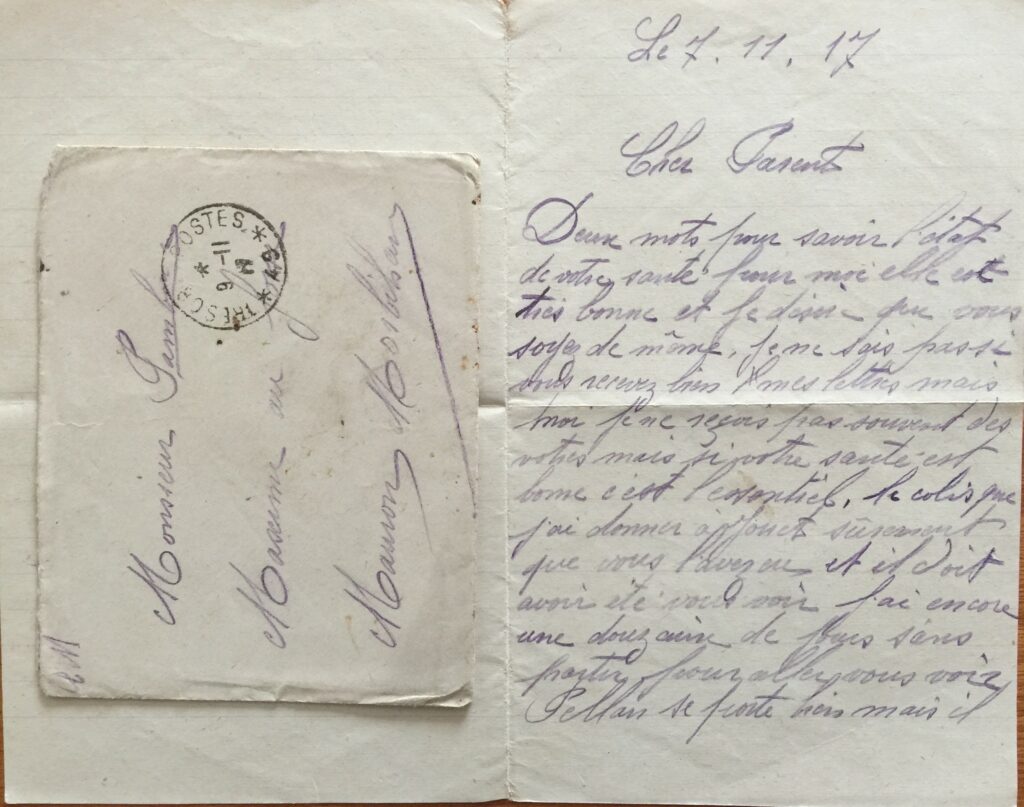 Le 7. 11. 17
Cher Parent
Deux mots pour savoir l'état
de votre santé pour moi elle est
très bonne et je désire que vous
soyez de même, je ne sais pas si
vous recevez bien mes lettres mais
moi je ne reçois pas souvent des
votres mais si votre santé est
bonne c'est l'essentiel, le colis que
j'ai donner à surement
que vous l'avez eu et il doit
avoir été vous voir j'ai encore
une douzaine de jours sans
partir pour aller vous voir
Pellan se porte bien mais il
TRESOR POSTES * 149 *
9 -11 17
Monsieur
Maxime au
Mauron Morbihan
F M